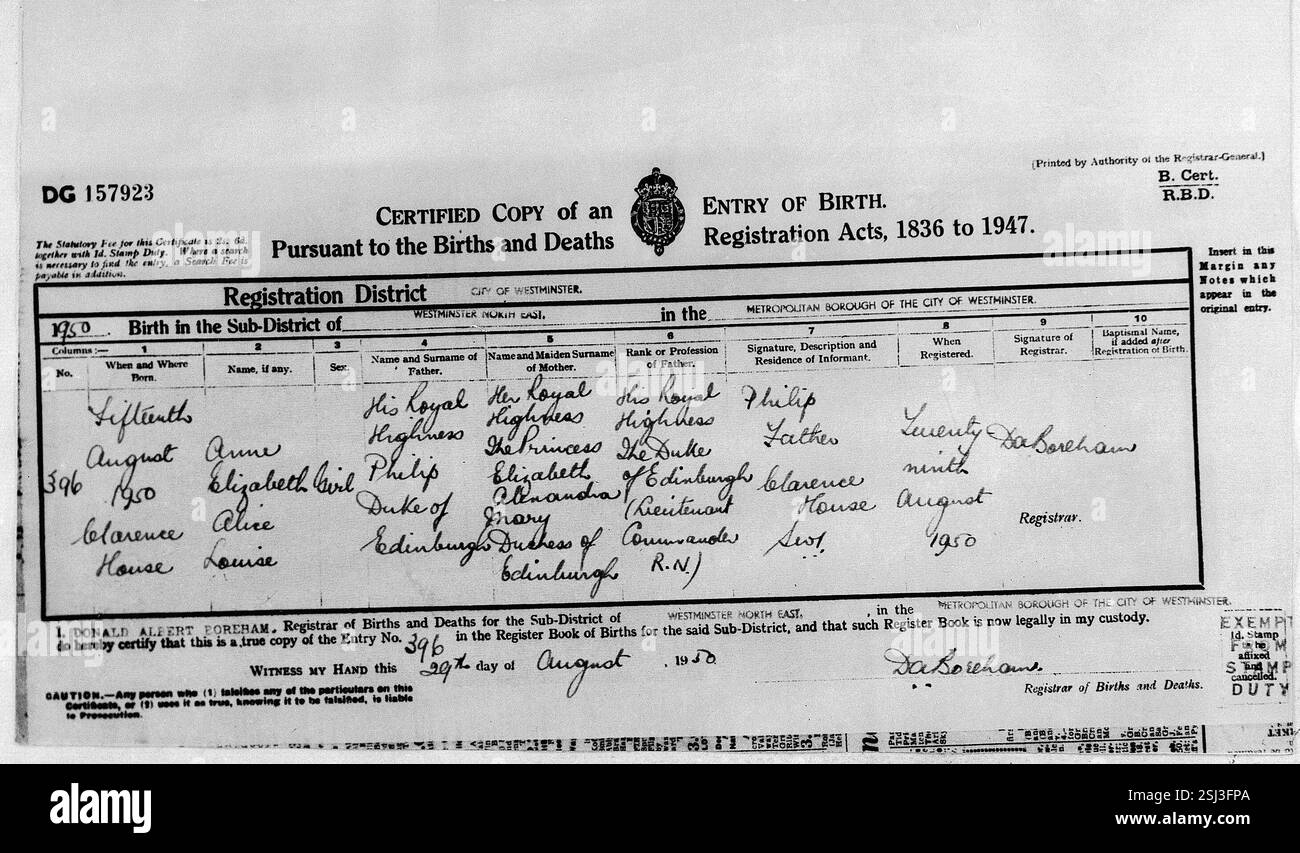 [Printed by Authority of the Registrar-General.]
B. Cert.
R.B.D.
DG 157923
CERTIFIED COPY of an ENTRY OF BIRTH.
Pursuant to the Births and Deaths Registration Acts, 1836 to 1947.
The Statutory Fee for this Certificate is 2s. 6d.
together with 1d. Stamp Duty. Where a search
is necessary to find the entry, a Search Fee is
payable in addition.
Insert in this
Margin any
Notes which
appear in the
original entry.
Registration District CITY OF WESTMINSTER.
1950. Birth in the Sub-District of WESTMINSTER NORTH EAST, in the METROPOLITAN BOROUGH OF THE CITY OF WESTMINSTER.
Columns:— 1 2 3 4 5 6 7 8 9 10
No.
When and Where
Born.
Name, if any.
Sex.
Name and Surname of
Father.
Name and Maiden Surname
of Mother.
Rank or Profession
of Father.
Signature, Description and
Residence of Informant.
When
Registered.
Signature of
Registrar.
Baptismal Name,
if added after
Registration of Birth.
396
Fifteenth
August
1950
Clarence
House
Anne
Elizabeth
Alice
Louise
Girl
His Royal
Highness
Philip
Duke of
Edinburgh
Her Royal
Highness
The Princess
Elizabeth
Alexandra
Mary
Duchess of
Edinburgh
His Royal
Highness
The Duke
of Edinburgh
(Lieutenant
Commander
R.N.)
Philip
Father
Clarence
House
SW1.
Twenty
ninth
August
1950
DaBoreham
Registrar.
I, DONALD ALBERT BOREHAM, Registrar of Births and Deaths for the Sub-District of WESTMINSTER NORTH EAST, in the METROPOLITAN BOROUGH OF THE CITY OF WESTMINSTER.
do hereby certify that this is a true copy of the Entry No. 396 in the Register Book of Births for the said Sub-District, and that such Register Book is now legally in my custody.
WITNESS MY HAND this 29th day of August, 1950.
DaBoreham.
Registrar of Births and Deaths.
CAUTION.—Any person who (1) falsifies any of the particulars on this
Certificate, or (2) uses it as true, knowing it to be falsified, is liable
to Prosecution.
EXEMPT
1d. Stamp
FROM
to be
affixed
STAMP
and
cancelled.
DUTY
alamy
alamy
Image ID: 2SJ3FPA
www.alamy.com